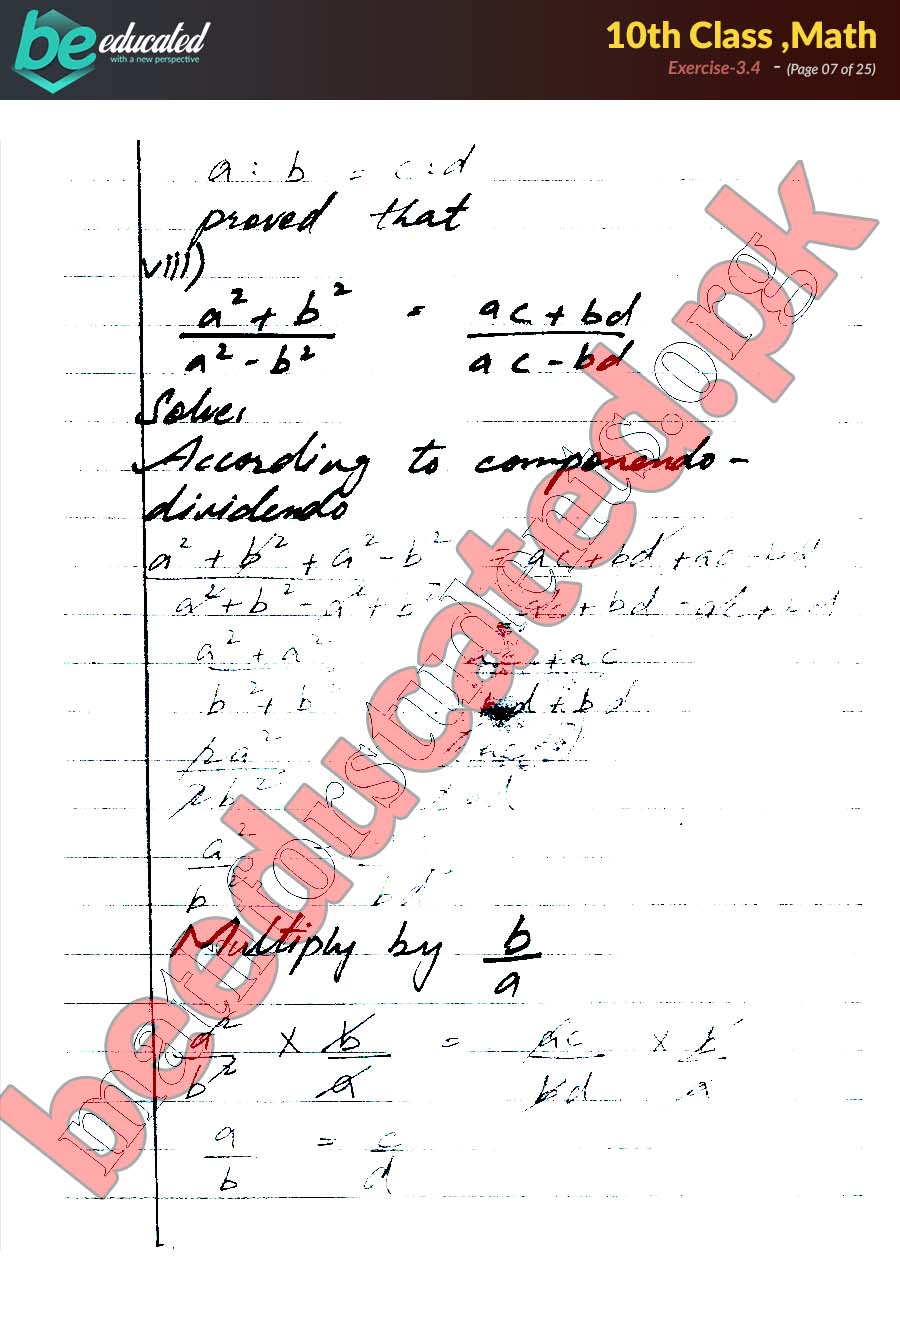 be educated
with a new perspective
10th Class ,Math
Exercise-3.4 - (Page 07 of 25)
a : b = c : d
proved that
viii)
a² + b² = ac + bd
a² - b² ac - bd
Solve,
According to componendo -
dividendo
a² + b² + a² - b² = ac + bd + ac - bd
a² + b² - a² + b² ac + bd - ac + bd
a² + a² = ac + ac
b² + b² bd + bd
2a² 2ac
2b²
a²
b² bd
Multiply by b
a
a² × b = ac × b
b² a bd a
a = c
b d
beeducated.pk